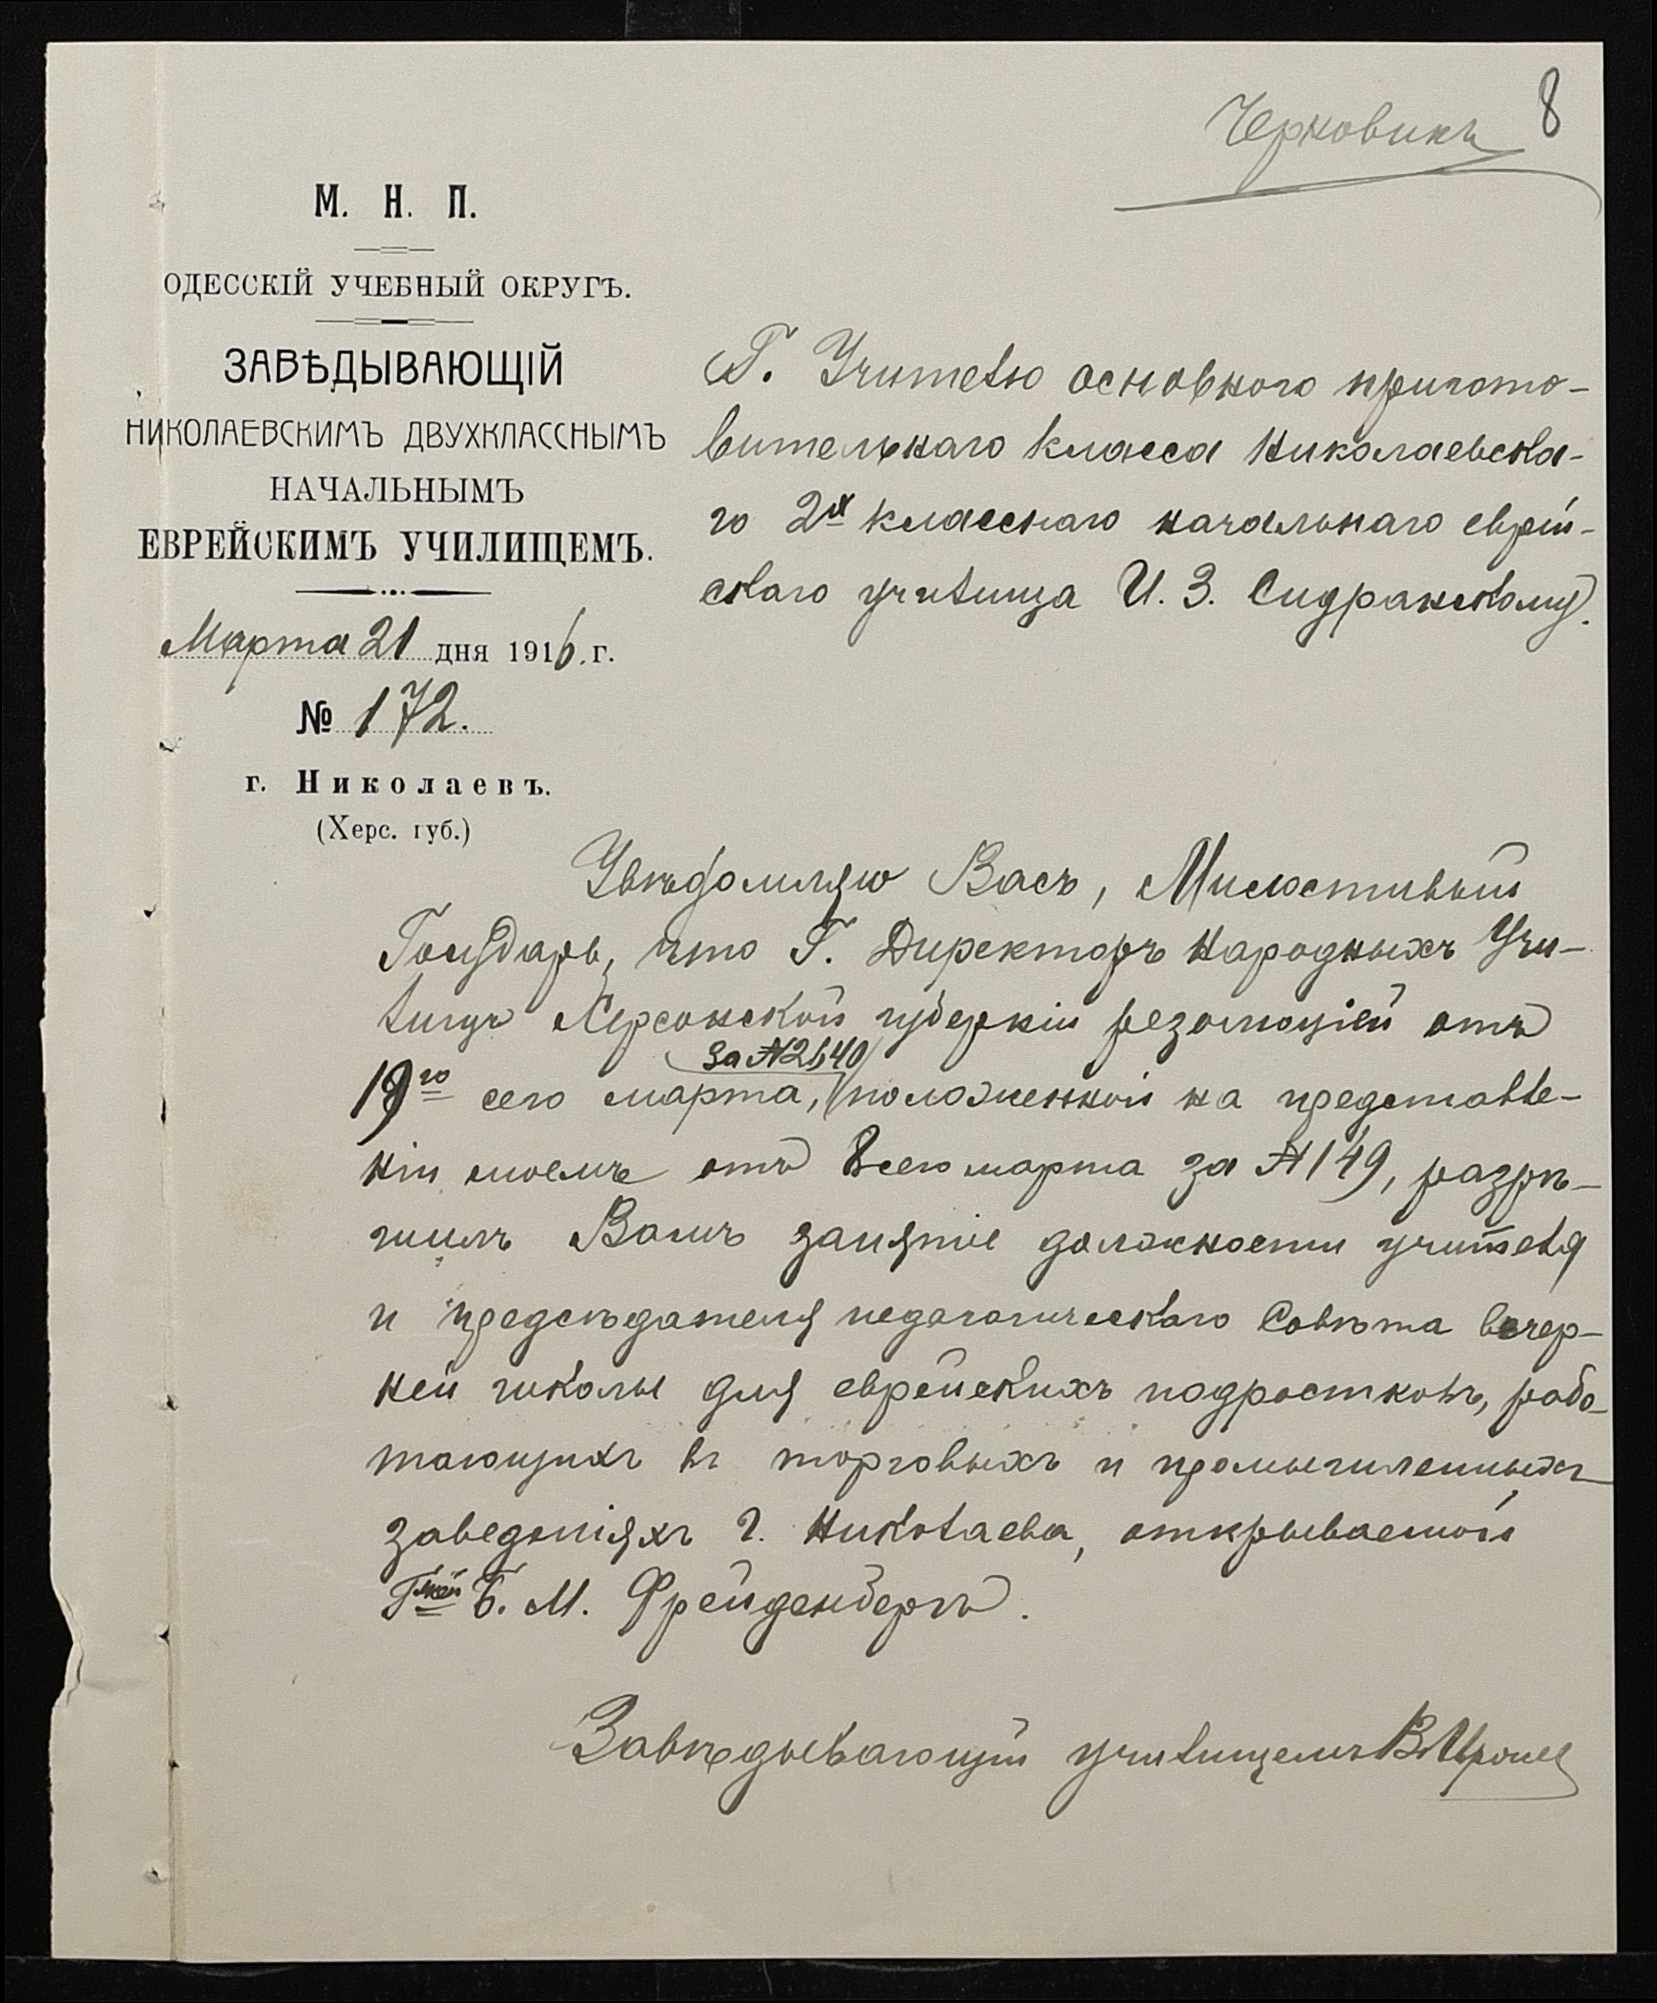 Черновикъ 8
М. Н. П.
ОДЕССКІЙ УЧЕБНЫЙ ОКРУГЪ.
ЗАВѢДЫВАЮЩІЙ
НИКОЛАЕВСКИМЪ ДВУХКЛАССНЫМЪ
НАЧАЛЬНЫМЪ
ЕВРЕЙСКИМЪ УЧИЛИЩЕМЪ.
Марта 21 дня 1916. г.
№ 172.
г. Николаевъ.
(Херс. губ.)
Г. Учителю основного пригото-
вительнаго класса Николаевска-
го 2х класснаго начальнаго еврей-
скаго училища И. З. Сидранскому.
Увѣдомляю Васъ, Милостивый
Государь, что Г. Директоръ Народныхъ Учи-
лищъ Херсонской губерніи резолюціей отъ
за №2640
19го сего марта, положенной на представле-
ніи моемъ отъ 8 сего марта за №149, разрѣ-
шилъ Вамъ занятіе должности учителя
и предсѣдателя педагогическаго Совѣта вечер-
ней школы для еврейскихъ подростковъ, рабо-
тающихъ въ торговыхъ и промышленныхъ
заведеніяхъ г. Николаева, открываемой
Гжей Б. М. Фрейденбергъ.
Завѣдывающій училищемъ В.